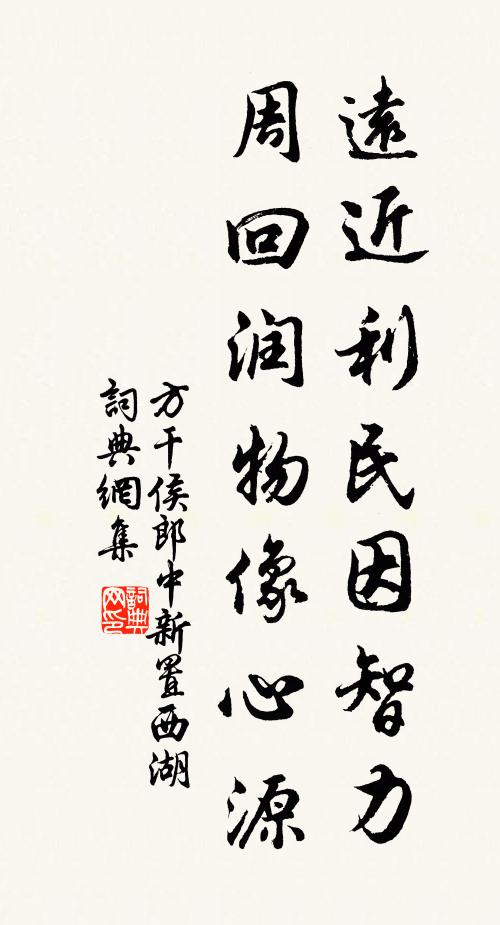 遠近利民因智力
周回润物像心源
方干侯郎中新置西湖
詞典網集
詞典
网印